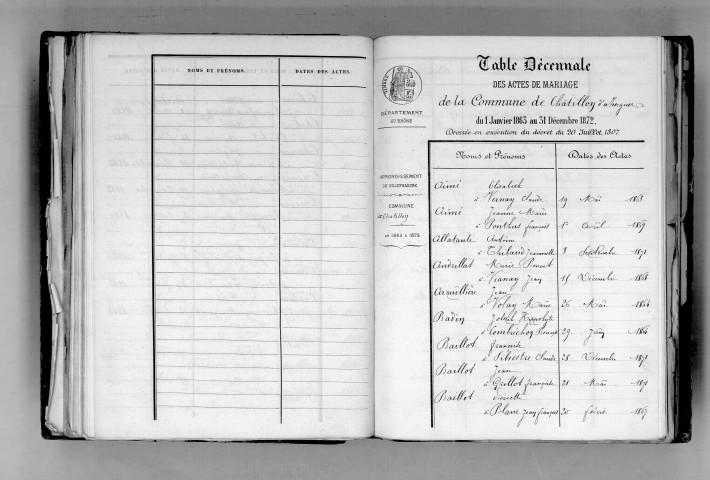 NOMS ET PRÉNOMS. DATES DES ACTES.
Table Décennale
DES ACTES DE MARIAGE
de la Commune de Châtillon d'Azergues
du 1 Janvier 1863 au 31 Décembre 1872.
Dressée en exécution du décret du 20 Juillet 1807.
DÉPARTEMENT
DU RHÔNE
ARRONDISSEMENT
DE VILLEFRANCHE
COMMUNE
de Chatillon
DE 1863 à 1872
Noms et Prénoms Dates des Actes
Aimé Elisabeth
à Vernay Claude 19 Mai 1868
Aimé Jeanne Marie
à Ponthus français 1er Avril 1869
Allatante Antoine
à Thibaud Jeannette 8 Septembre 1871
Andrillat Marie Benoit
à Vianay Jean 15 Décembre 1868
Jean
à Volay Marie 26 Mai 1864
Badin Joseph Hippolyte
à Combichon Benoite 29 Juin 1864
Baillot françoise
à Silvestre Claude 28 Décembre 1871
Baillot Jean
à Guillot françoise 21 Mai 1871
Baillot Pierrette
à Jean français 20 février 1867